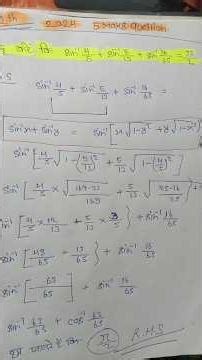 2024 5 marks Question
sin⁻¹ 4/5 + sin⁻¹ 5/13 + sin⁻¹ 16/65 = π/2
sin⁻¹ 4/5 + sin⁻¹ 5/13 + sin⁻¹ 16/65 =
sin⁻¹x + sin⁻¹y = sin⁻¹[x√1-y² + y√1-x²]
sin⁻¹[4/5 √1-(5/13)² + 5/13 √1-(4/5)²]
sin⁻¹[4/5 × √169-25/169 + 5/13 √25-16/25]
[4/5 × 12/13 + 5/13 × 3/5} + sin⁻¹ 16/65
sin⁻¹[48/65 + 15/65} + sin⁻¹ 16/65
sin⁻¹[63/65] + sin⁻¹ 16/65
sin⁻¹ 63/65 + cos⁻¹ 63/65
π/2 R.H.S